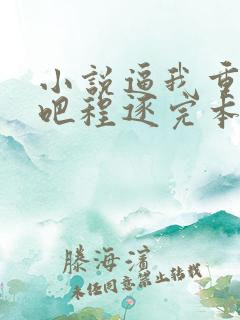 小說逼我重
吧程逐完本
滕海濱
未任同意禁止转载